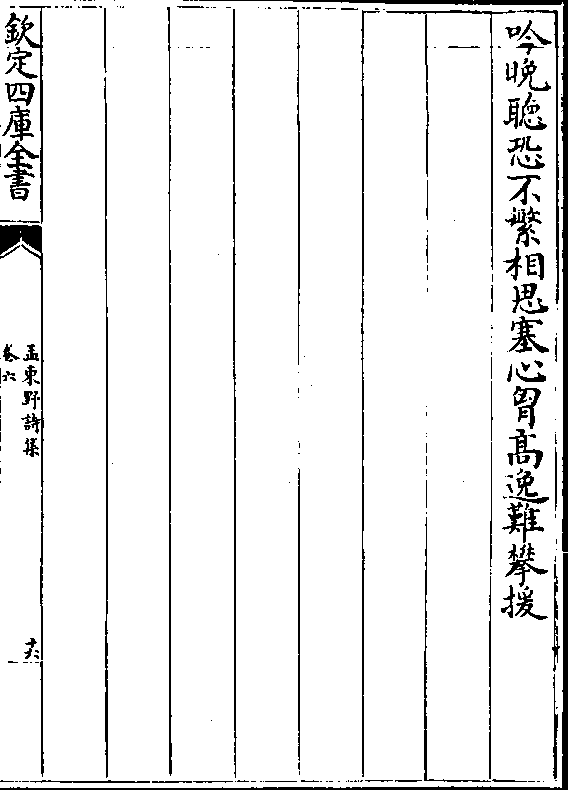 吟晚聴恐不繁相思塞心胷高逸難攀援
欽定四庫全書
孟東野詩集
卷六
十六